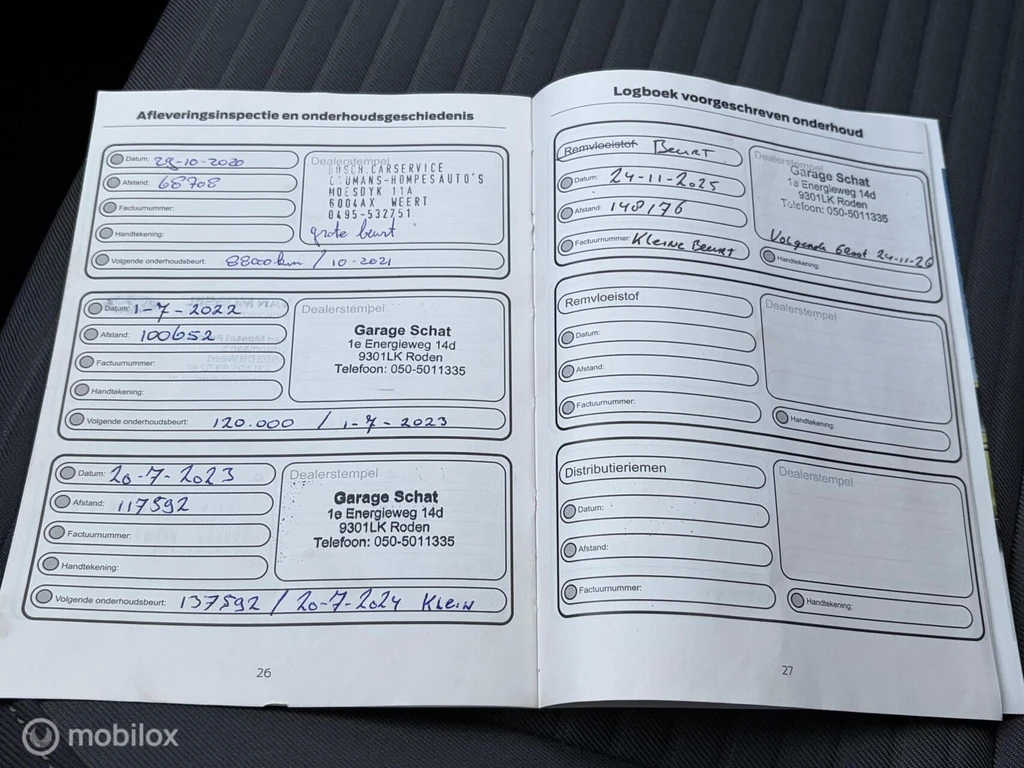 Afleveringsinspectie en onderhoudsgeschiedenis
Datum: 29-10-2020
Afstand: 68708
Factuurnummer:
Handtekening:
Dealerstempel
BOSCH CARSERVICE
COUMANS-HOMPESAUTO'S
MOESDYK 11A
6004AX WEERT
0495-532751
grote beurt
Volgende onderhoudsbeurt: 88000km / 10-2021
Datum: 1-7-2022
Afstand: 100652
Factuurnummer:
Handtekening:
Dealerstempel
Garage Schat
1e Energieweg 14d
9301LK Roden
Telefoon: 050-5011335
Volgende onderhoudsbeurt: 120.000 / 1-7-2023
Datum: 20-7-2023
Afstand: 117592
Factuurnummer:
Handtekening:
Dealerstempel
Garage Schat
1e Energieweg 14d
9301LK Roden
Telefoon: 050-5011335
Volgende onderhoudsbeurt: 137592 / 20-7-2024 Klein
26
Logboek voorgeschreven onderhoud
Remvloeistof Beurt
Datum: 24-11-2025
Afstand: 148176
Factuurnummer: Kleine Beurt
Dealerstempel
Garage Schat
1e Energieweg 14d
9301LK Roden
Telefoon: 050-5011335
Volgende beurt 24-11-26
Handtekening:
Remvloeistof
Datum:
Afstand:
Factuurnummer:
Dealerstempel
Handtekening:
Distributieriemen
Datum:
Afstand:
Factuurnummer:
Dealerstempel
Handtekening:
27
mobilox